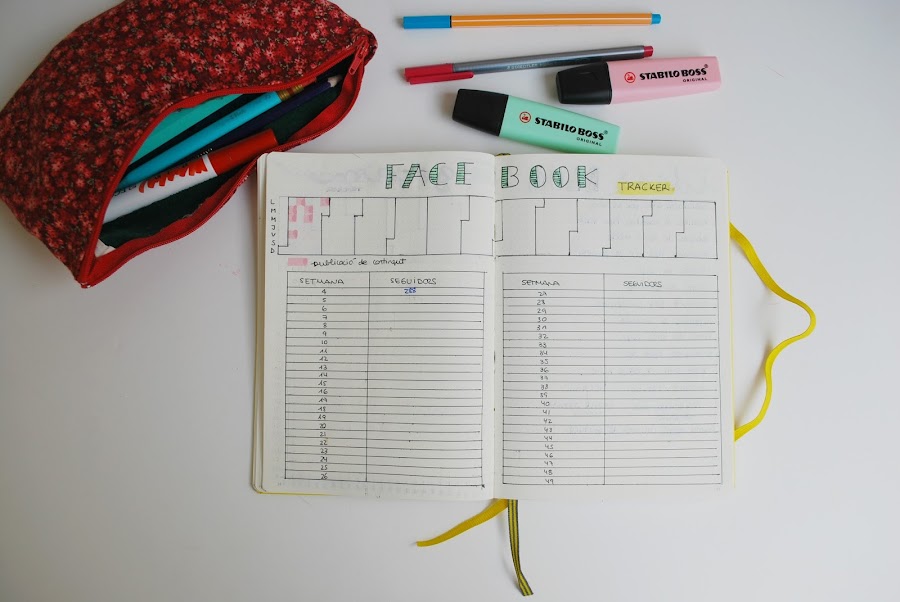 STABILO BOSS
ORIGINAL
STABILO BOSS
ORIGINAL
FACEBOOK
TRACKER
L
M
M
J
V
S
D
publicació de contingut
SETMANA SEGUIDORS
4 288
5
6
7
8
9
10
11
12
13
14
15
16
17
18
19
20
21
22
23
24
25
26
SETMANA SEGUIDORS
27
28
29
30
31
32
33
34
35
36
37
38
39
40
41
42
43
44
45
46
47
48
49